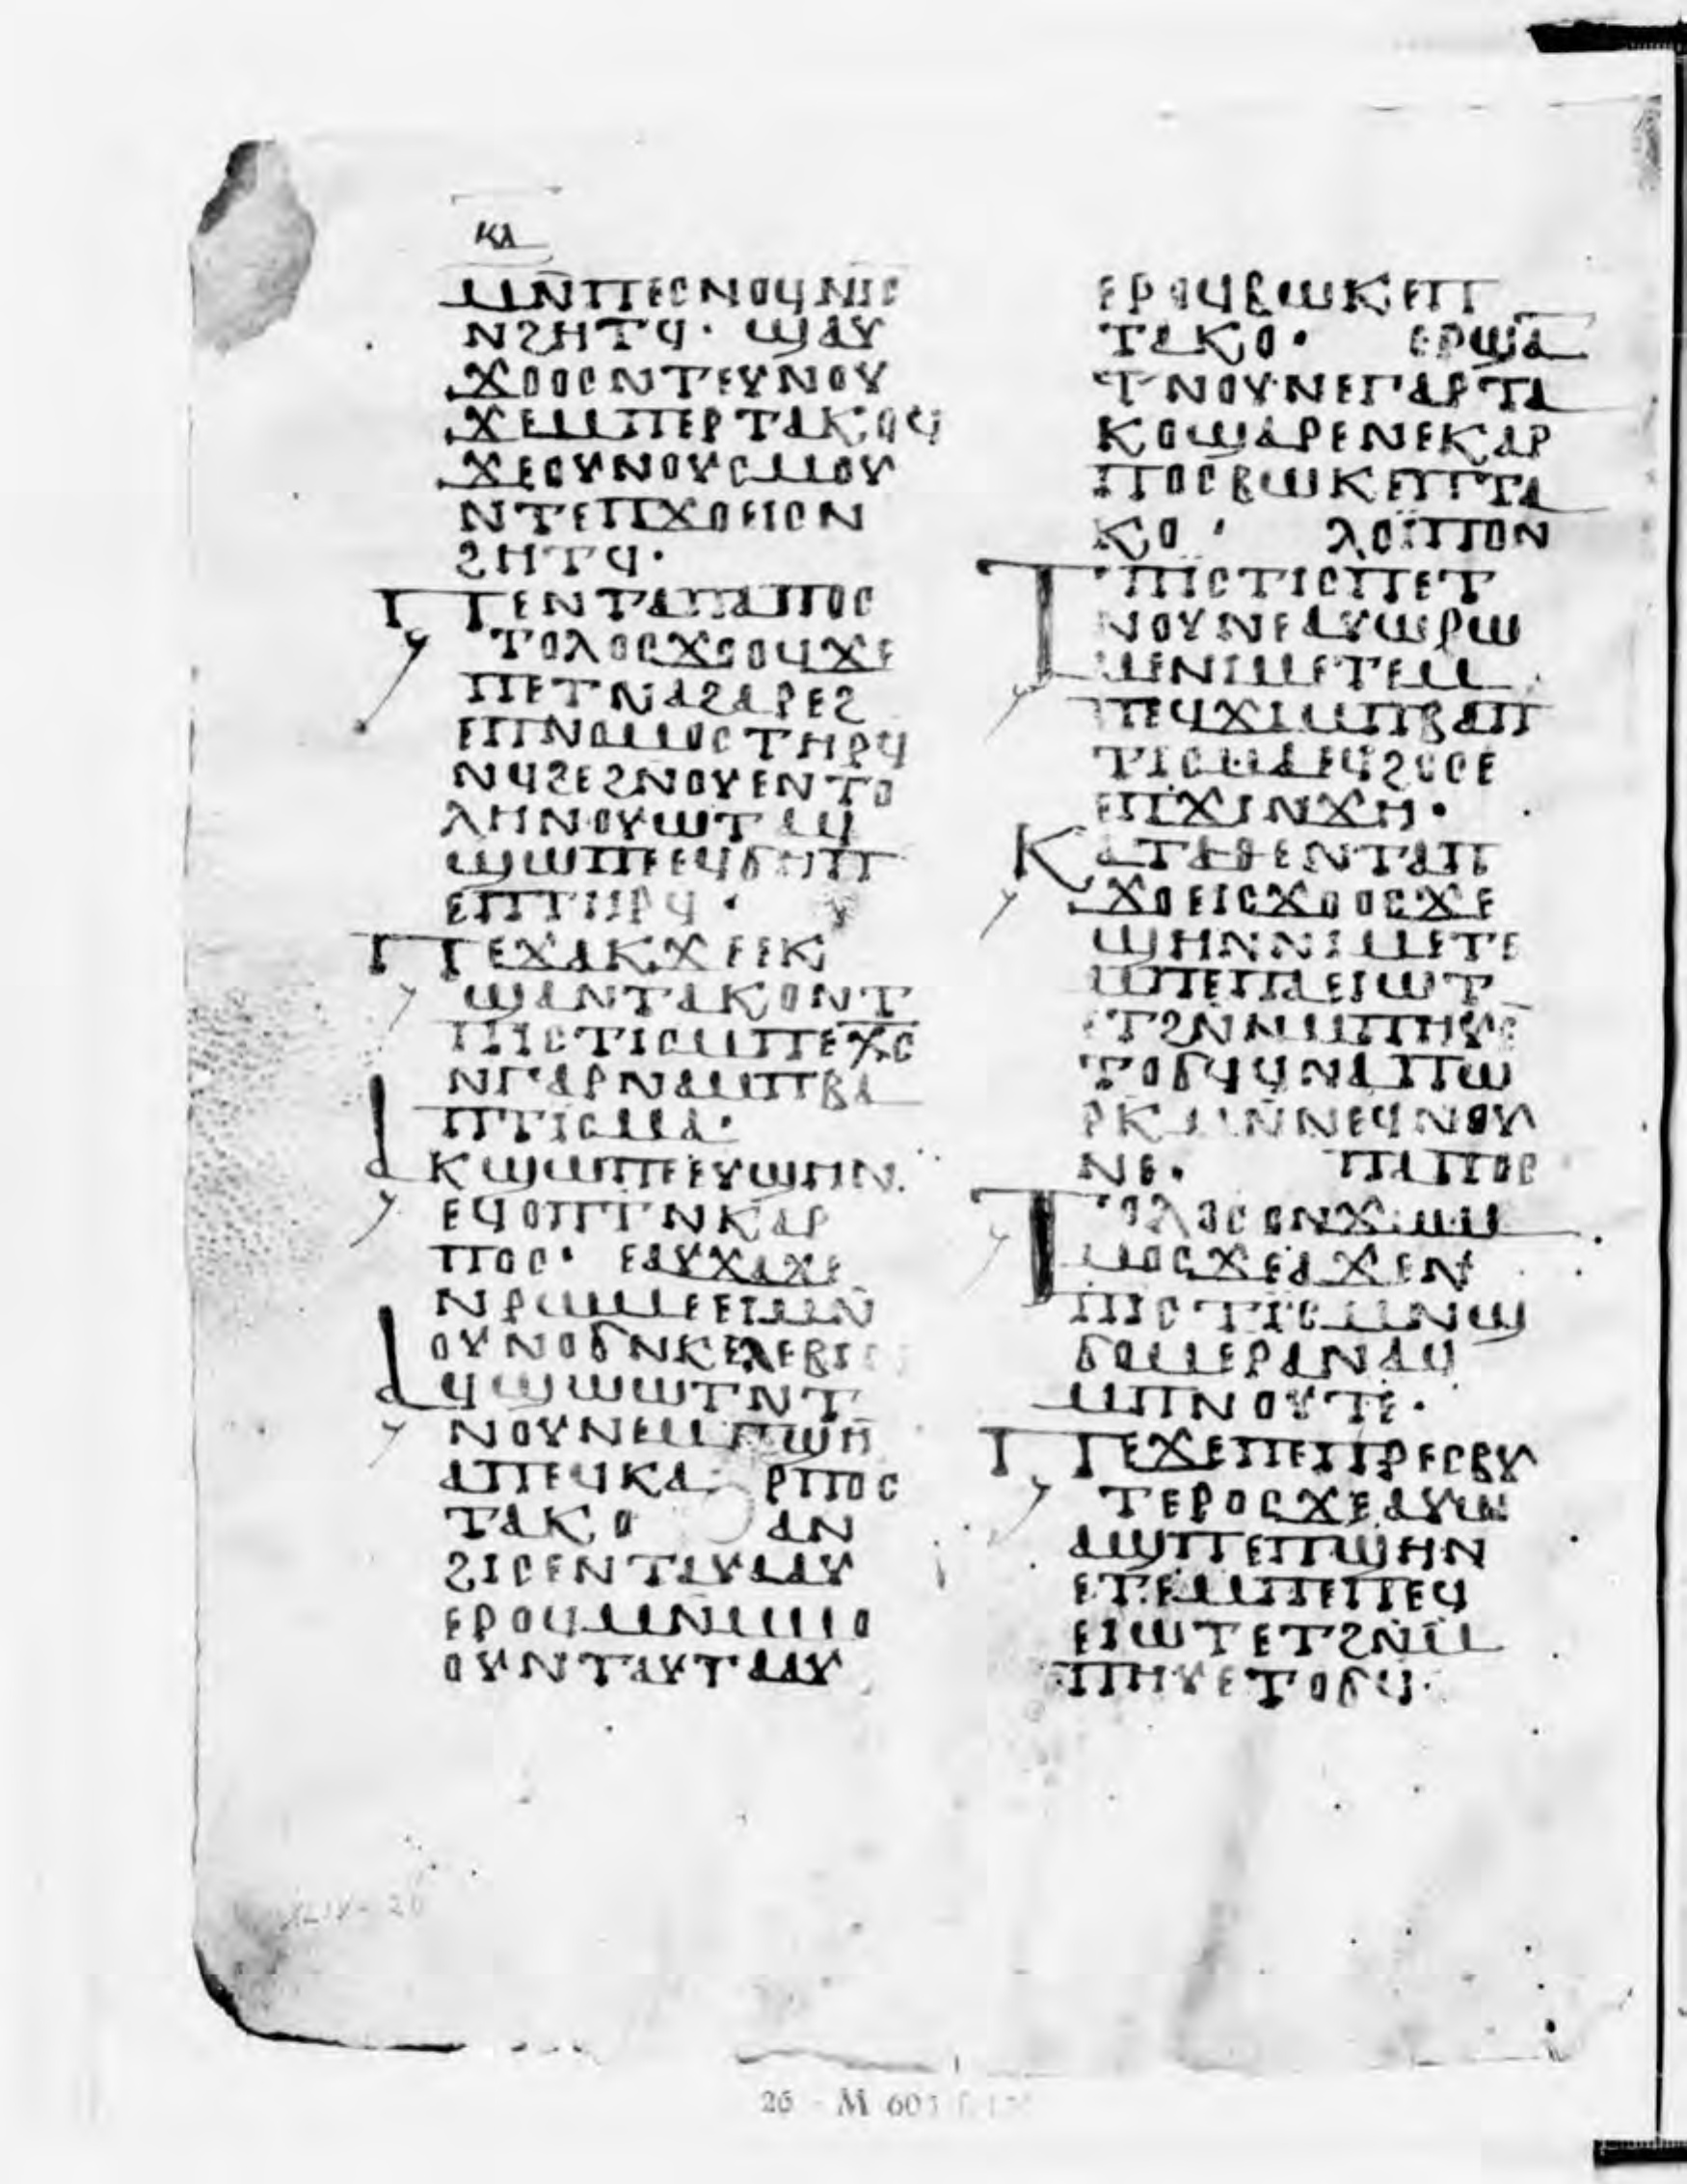 ⲕⲁ
ⲙⲛⲡⲉⲥⲛⲟⲩϥⲛⲓⲥ
ⲛϩⲏⲧϥ· ϣⲁⲩ
ϫⲟⲟⲥⲛⲧⲉⲩⲛⲟⲩ
ϫⲉⲙⲡⲉⲣⲧⲁⲕⲟϥ
ϫⲉⲟⲩⲛⲟⲩⲥⲙⲟⲩ
ⲛⲧⲉⲡϫⲟⲉⲓⲥⲛ
ϩⲏⲧϥ·
ⲡⲉⲛⲧⲁⲡⲁⲡⲟⲥ
ⲧⲟⲗⲟⲥϫⲟⲟϥϫⲉ
ⲡⲉⲧⲛⲁϩⲁⲣⲉϩ
ⲉⲡⲛⲟⲙⲟⲥⲧⲏⲣϥ
ⲛϥϩⲉϩⲛⲟⲩⲉⲛⲧⲟ
ⲗⲏⲛⲟⲩⲱⲧ ⲁϥ
ϣⲱⲡⲉⲉϥϭⲏⲡ
ⲉⲡⲧⲏⲣϥ·
ⲡⲉϫⲁⲕϫⲉⲉⲕ
ϣⲁⲛⲧⲁⲕⲟⲛⲧ
ⲡⲓⲥⲧⲓⲥⲙⲡⲉⲭⲥ
ⲛⲅⲁⲣⲛⲁⲙⲡⲃⲁ
ⲡⲧⲓⲥⲙⲁ·
ⲁⲕϣⲱⲡⲉⲉⲩϣⲏⲛ
ⲉϥⲟⲡⲧⲛⲕⲁⲣ
ⲡⲟⲥ· ⲉⲁⲩϫⲁϫⲉ
ⲛⲣⲱⲙⲉⲉⲓⲙⲛ
ⲟⲩⲛⲟϭⲛⲕⲉⲗⲉⲃⲓⲛ
ⲁϥϣⲱⲱⲧⲛⲧ
ⲛⲟⲩⲛⲉⲙⲡϣⲏ
ⲁⲡⲉϥⲕⲁⲣⲡⲟⲥ
ⲧⲁⲕⲟ ⲁⲛ
ϩⲓⲥⲉⲛⲧⲁⲩⲁⲁⲩ
ⲉⲣⲟϥⲙⲛⲙⲙⲟ
ⲟⲩⲛⲧⲁⲩⲧⲁⲁⲩ
ⲉⲣⲟϥⲃⲱⲕⲉⲡ
ⲧⲁⲕⲟ· ⲉⲣϣⲁ
ⲧⲛⲟⲩⲛⲉⲅⲁⲣⲧⲁ
ⲕⲟϣⲁⲣⲉⲛⲉⲕⲁⲣ
ⲡⲟⲥⲃⲱⲕⲉⲡⲧⲁ
ⲕⲟ· ⲗⲟⲓⲡⲟⲛ
ⲧⲡⲓⲥⲧⲓⲥⲡⲉⲧ
ⲛⲟⲩⲛⲉⲁⲩⲱⲣⲱ
ⲙⲉⲛⲓⲙⲉⲧⲉⲙ
ⲡⲉϥϫⲓⲙⲡⲃⲁⲡ
ⲧⲓⲥⲙⲁⲉϥϩⲟⲥⲉ
ⲉⲡϫⲓⲛϫⲏ·
ⲕⲁⲧⲁⲑⲉⲛⲧⲁⲡ
ϫⲟⲉⲓⲥϫⲟⲟⲥϫⲉ
ϣⲏⲛⲛⲓⲙⲉⲧⲉ
ⲙⲡⲉⲡⲁⲉⲓⲱⲧ
ⲉⲧϩⲛⲙⲡⲏⲩⲉ
ⲧⲟϭϥϥⲛⲁⲡⲱ
ⲣⲕ ⲙⲛⲛⲉϥⲛⲟⲩ
ⲛⲉ· ⲡⲁⲡⲟⲥ
ⲧⲟⲗⲟⲥⲟⲛϫⲱⲙ
ⲙⲟⲥϫⲉⲁϫⲉⲛ
ⲡⲓⲥⲧⲓⲥⲙⲛϣ
ϭⲟⲙⲉⲣⲁⲛⲁϥ
ⲙⲡⲛⲟⲩⲧⲉ·
ⲡⲉϫⲉⲡⲉⲡⲣⲉⲥⲃⲩ
ⲧⲉⲣⲟⲥϫⲉⲁⲩⲱ
ⲁϣⲡⲉⲡϣⲏⲛ
ⲉⲧⲉⲙⲡⲉⲡⲉϥ
ⲉⲓⲱⲧⲉⲧϩⲛⲙ
ⲡⲏⲩⲉⲧⲟϭϥ·
XLIV-26